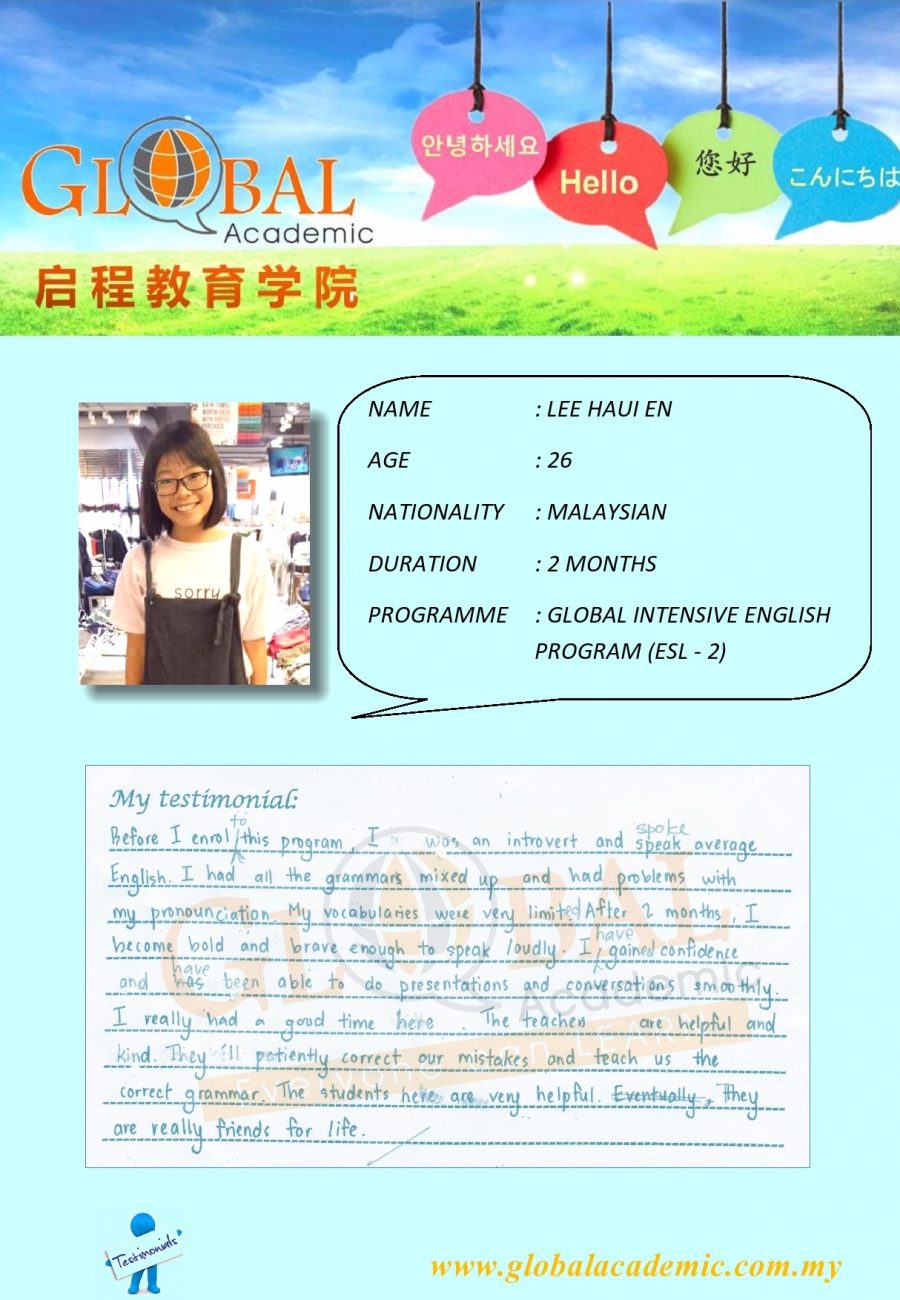 GLOBAL
Academic
启程教育学院
안녕하세요
Hello
您好
こんにちは
sorry
NAME : LEE HAUI EN
AGE : 26
NATIONALITY : MALAYSIAN
DURATION : 2 MONTHS
PROGRAMME : GLOBAL INTENSIVE ENGLISH
PROGRAM (ESL - 2)
My testimonial:
to
Before I enrol this program, I was an introvert and speak average
spoke
English. I had all the grammars mixed up and had problems with
my pronounciation. My vocabularies were very limited After 2 months, I
become bold and brave enough to speak loudly. I gained confidence
have
and has been able to do presentations and conversations smoothly.
have
I really had a good time here. The teachers are helpful and
kind. They ll patiently correct our mistakes and teach us the
correct grammar. The students here are very helpful. Eventually, They
are really friends for life.
GLOBAL
Academic
Everyone can LEARN
Testimonials
www.globalacademic.com.my